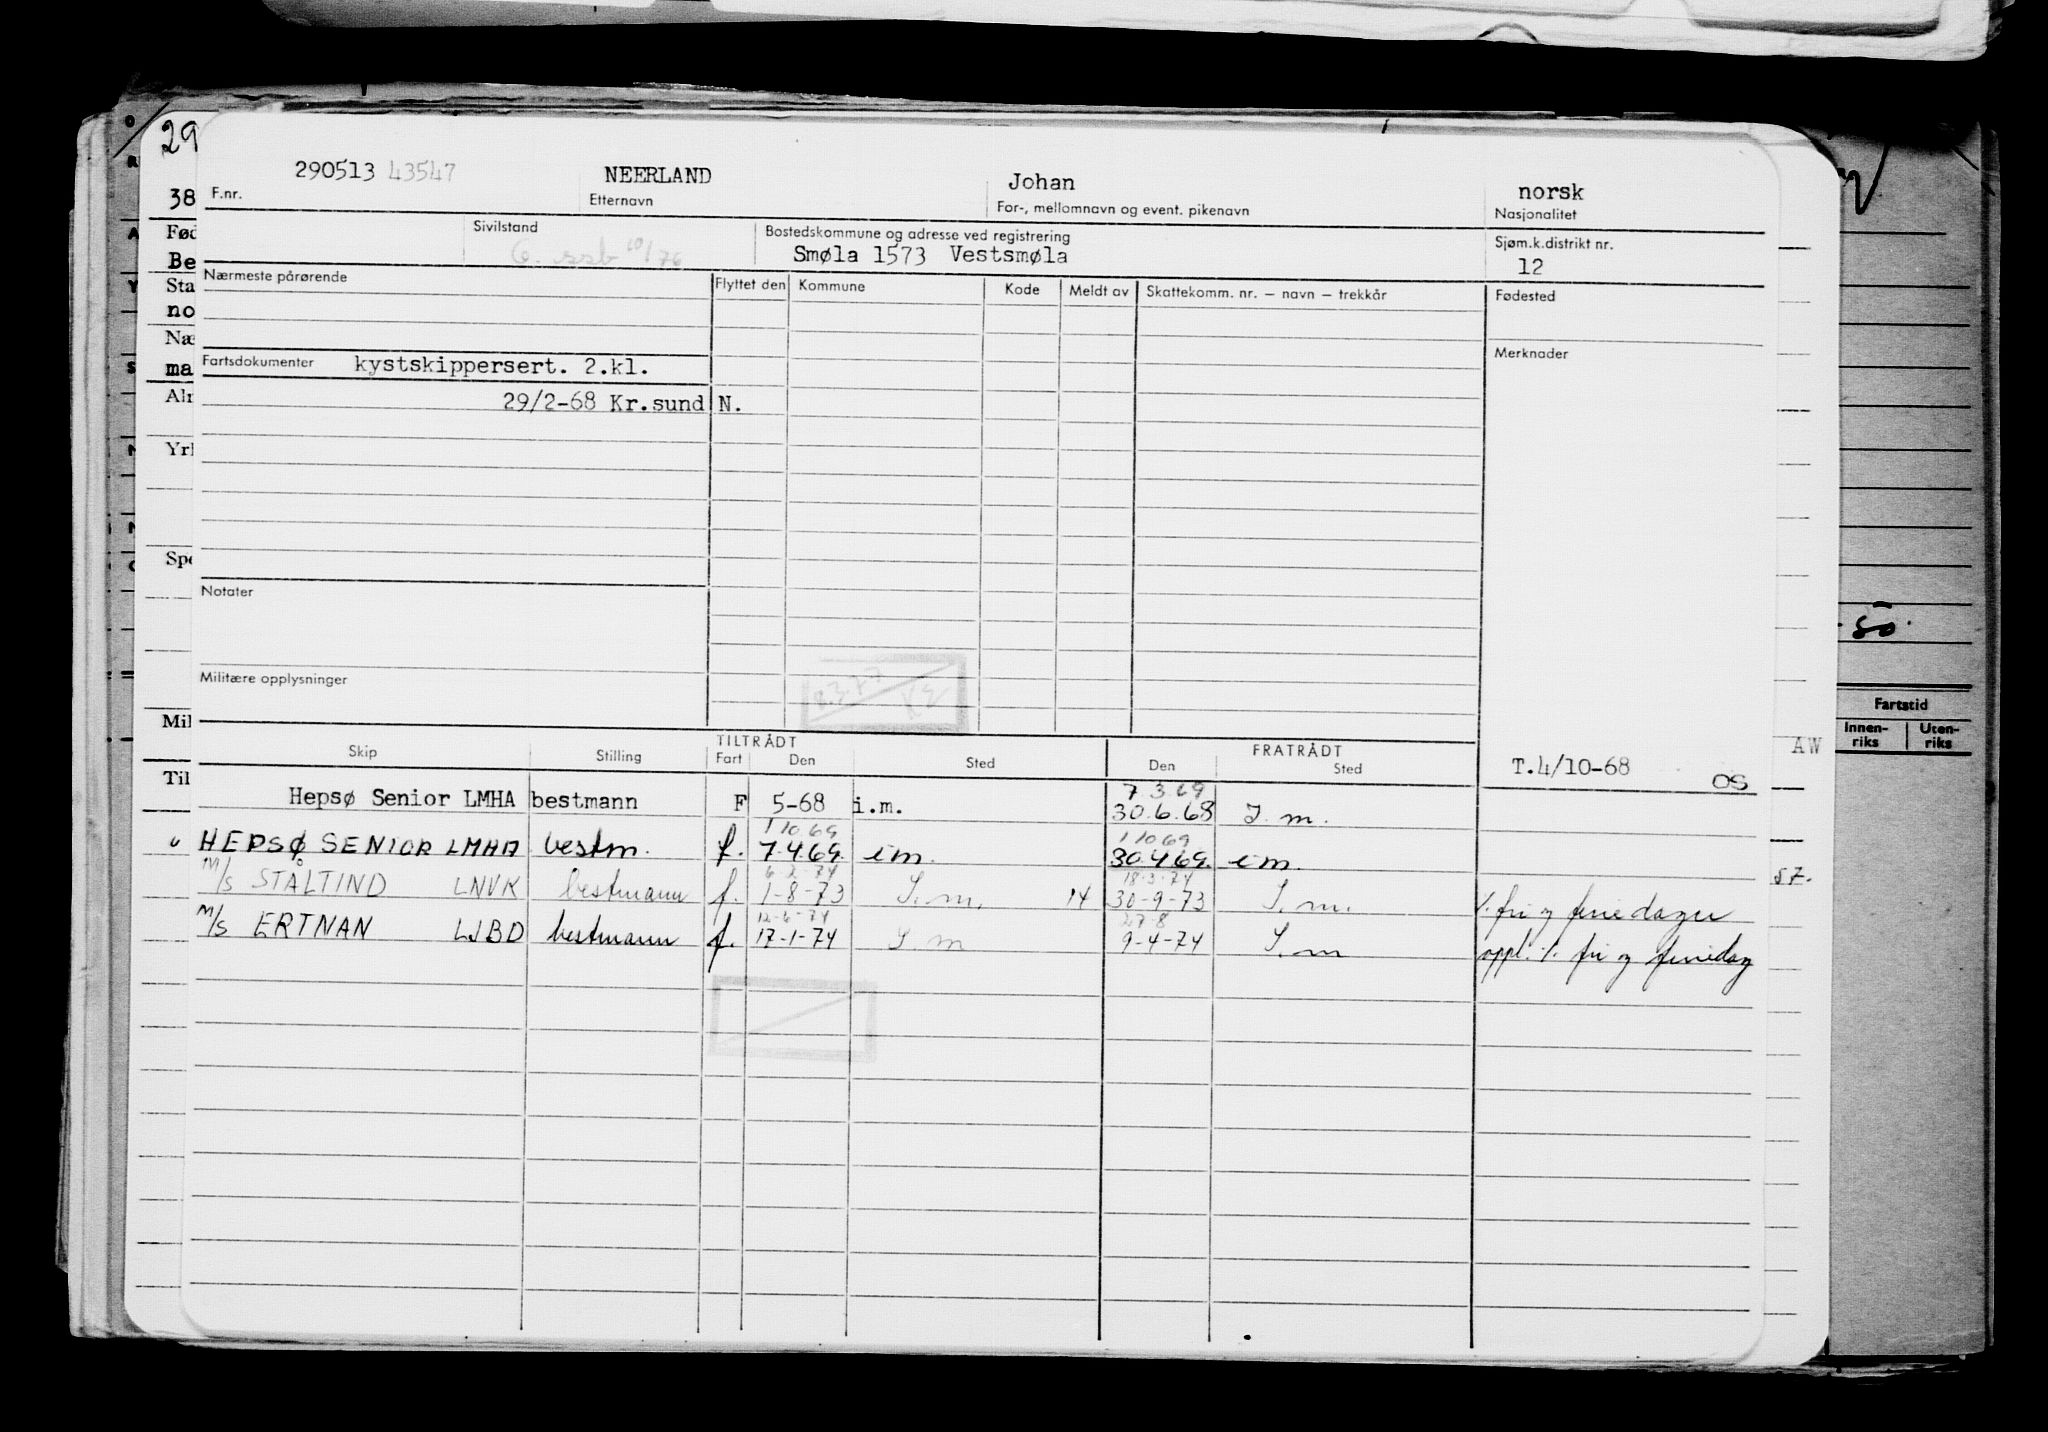 29
290513 43547 NEERLAND Johan norsk
38 F.nr. Etternavn For-, mellomnavn og event. pikenavn Nasjonalitet
Fød Sivilstand Bostedskommune og adresse ved registrering Sjøm.k.distrikt nr.
Be 6. ssb 10/76 Smøla 1573 Vestsmøla 12
Sta Nærmeste pårørende Flyttet den Kommune Kode Meldt av Skattekomm. nr. – navn – trekkår Fødested
no
Næ Merknader
ma Fartsdokumenter kystskippersert. 2.kl.
Alm 29/2-68 Kr.sund N.
Yrk
Spe
Notater
-50.
Militære opplysninger
8.3.77
Fartstid
Mil Innen-riks Uten-riks
TILTRÅDT FRATRÅDT AW
Skip Stilling Fart Den Sted Den Sted T.4/10-68 OS
Til
7.3.69
Hepsø Senior LMHA bestmann F 5-68 i.m. 30.6.68 I.m.
1 10.69 1 10 69
" HEPSØ SENIOR LMHA bestm. f. 7.4.69. i m. 30.4.69. i m.
6-2-74 18-3-74 57.
M/S STÅLTIND LNVK bestmann f. 1-8-73 I.m. 14 30-9-73 I.m. %. fri og feriedager
12-6-74 27-8
M/S ERTNAN LJBD bestmann f. 17-1-74 I.m 9-4-74 I.m oppl. %. fri og feriedag